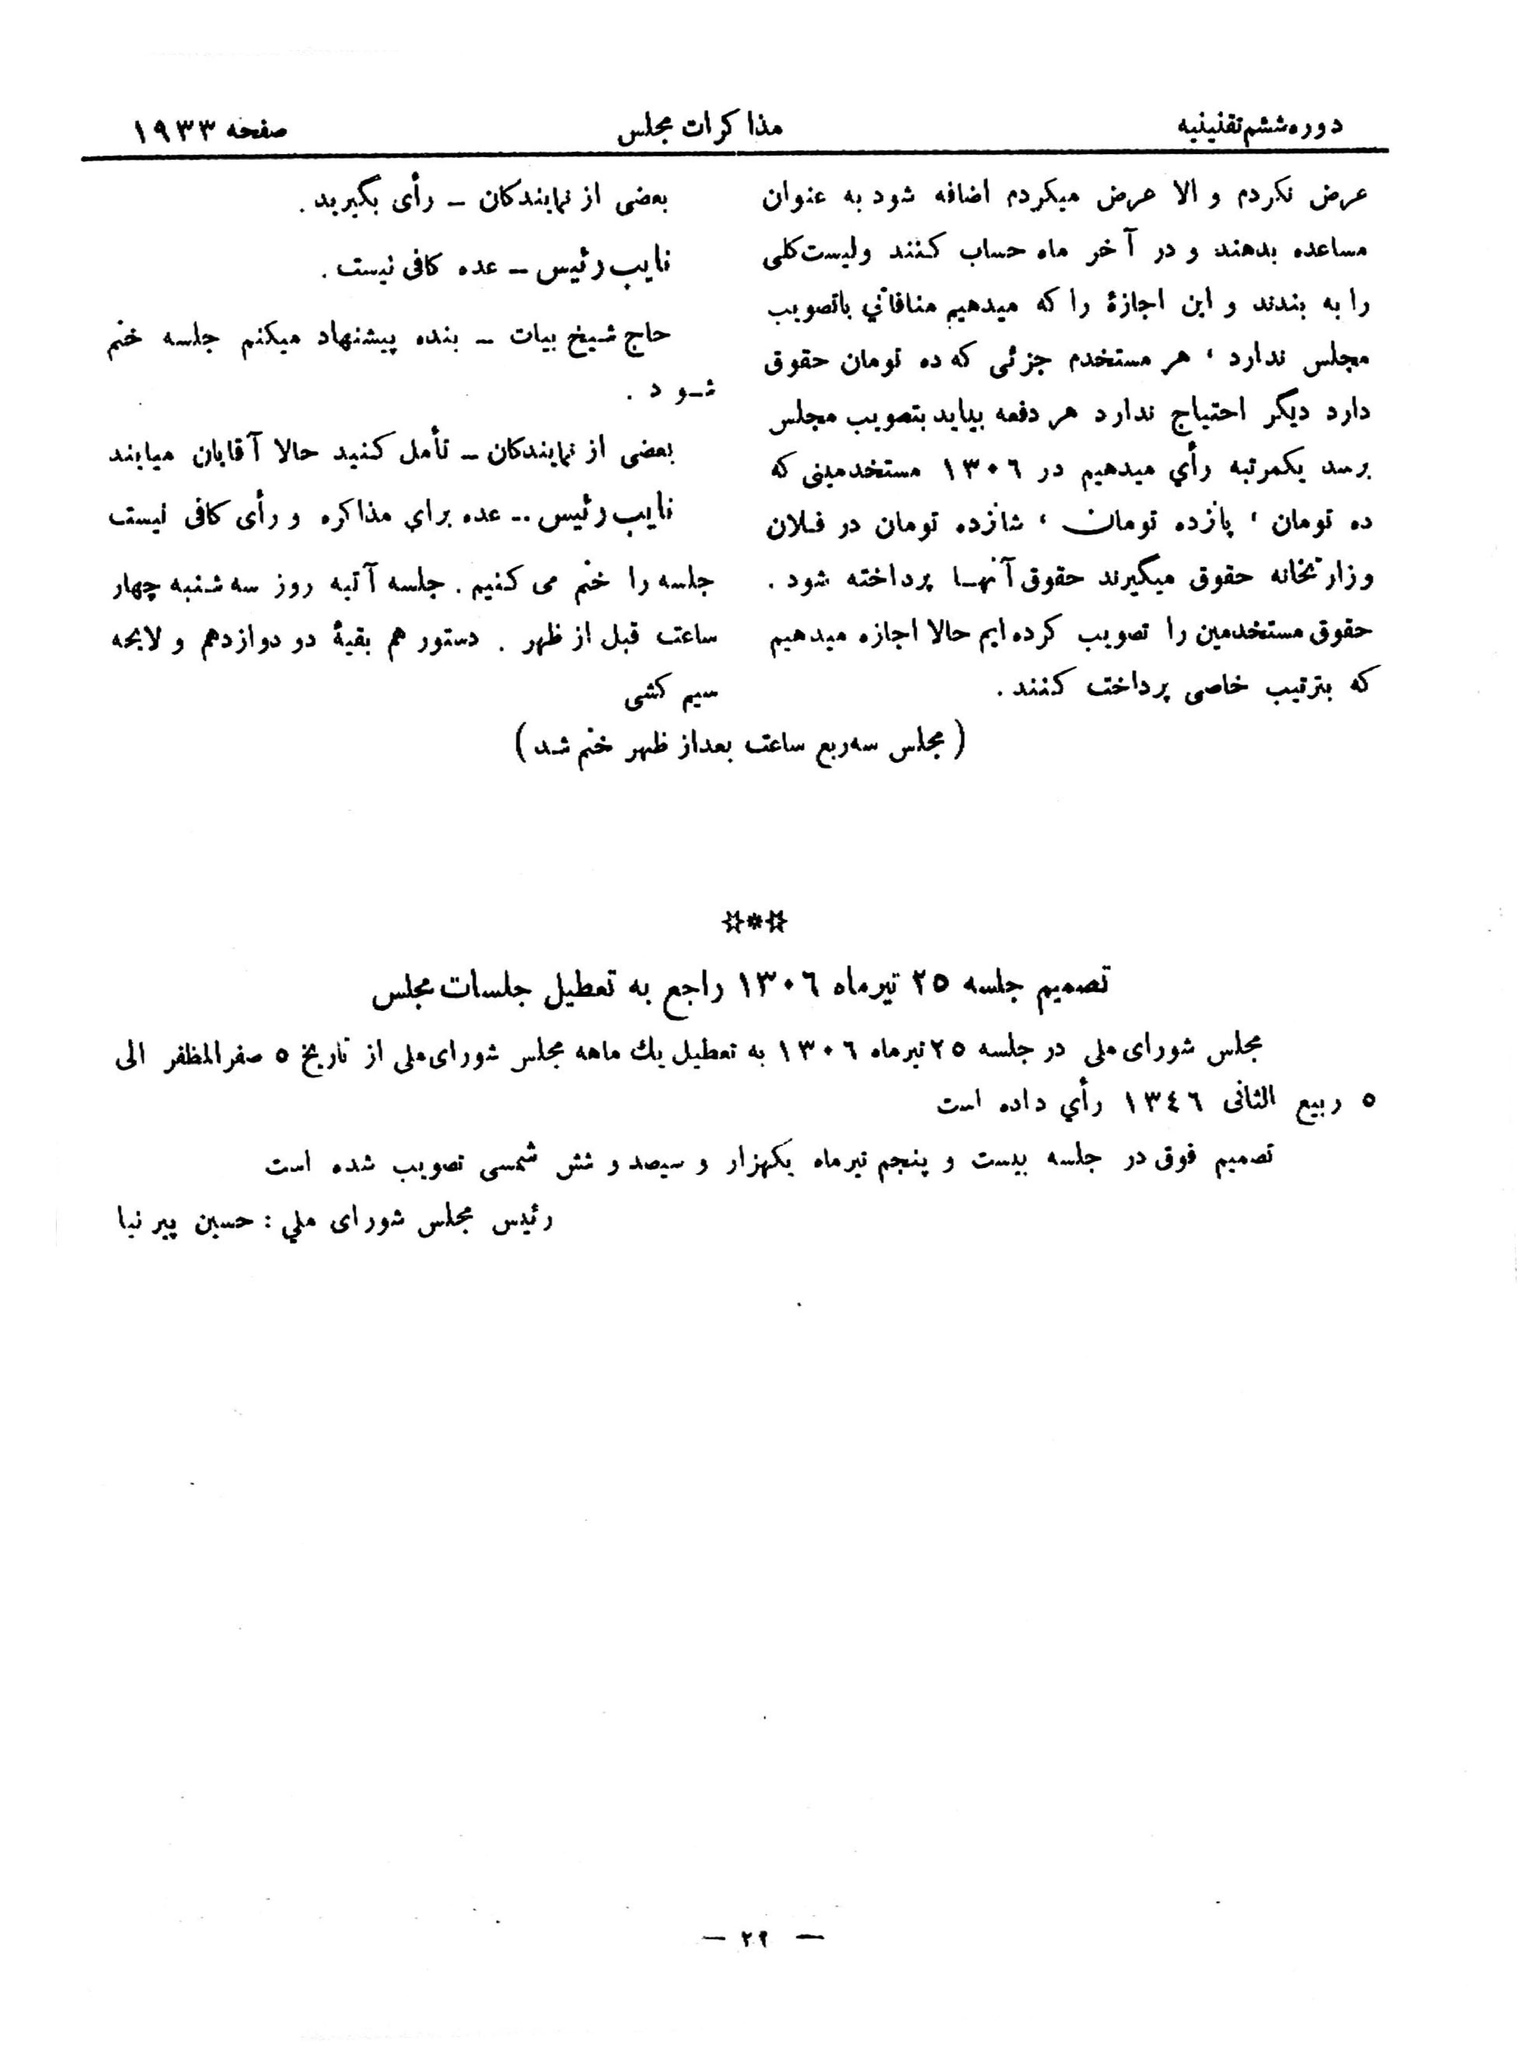 دوره ششم تقنینیه
مذاکرات مجلس
صفحه ۱۹۳۳
عرض نکردم و الا عرض میکردم اضافه شود به عنوان
مساعده بدهند و در آخر ماه حساب کنند و لیست کلی
را به بندند و این اجازهٔ را که میدهیم منافاتي با تصویب
مجلس ندارد ، هر مستخدم جزئی که ده تومان حقوق
دارد دیگر احتیاج ندارد هر دفعه بیاید بتصویب مجلس
برسد یکمرتبه رأي میدهیم در ۱۳۰۶ مستخدمینی که
ده تومان ، پانزده تومان ، شانزده تومان در فلان
وزارتخانه حقوق میگیرند حقوق آنها پرداخته شود .
حقوق مستخدمین را تصویب کرده ایم حالا اجازه میدهیم
که بترتیب خاصی پرداخت کنند .
بعضی از نمایندکان – رأی بگیرید .
نایب رئیس – عده کافی نیست .
حاج شیخ بیات – بنده پیشنهاد میکنم جلسه ختم
شود .
بعضی از نمایندکان – تأمل کنید حالا آقایان میایند
نایب رئیس – عده براي مذاکره و رأی کافی نیست
جلسه را ختم می کنیم . جلسه آتیه روز سه شنبه چهار
ساعت قبل از ظهر . دستور هم بقیهٔ دو دوازدهم و لایحه
سیم کشی
( مجلس سه ربع ساعت بعد از ظهر ختم شد )
☆*☆
تصمیم جلسه ۲۵ تیرماه ۱۳۰۶ راجع به تعطیل جلسات مجلس
مجلس شورای ملی در جلسه ۲۵ تیرماه ۱۳۰۶ به تعطیل یك ماهه مجلس شورای ملی از تاریخ ۵ صفر المظفر الی
۵ ربیع الثانی ۱۳٤۶ رأي داده است
تصمیم فوق در جلسه بیست و پنجم تیرماه یکهزار و سیصد و شش شمسی تصویب شده است
رئیس مجلس شورای ملي : حسین پیرنیا
– ۲۹ –